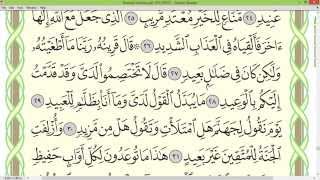 عَنِيدٍ ٢٤ مَّنَّاعٍ لِّلْخَيْرِ مُعْتَدٍ مُّرِيبٍ ٢٥ ٱلَّذِى جَعَلَ مَعَ ٱللَّهِ إِلَٰهًا
ءَاخَرَ فَأَلْقِيَاهُ فِى ٱلْعَذَابِ ٱلشَّدِيدِ ٢٦ ۞ قَالَ قَرِينُهُۥ رَبَّنَا مَآ أَطْغَيْتُهُۥ
وَلَٰكِن كَانَ فِى ضَلَٰلٍۭ بَعِيدٍ ٢٧ قَالَ لَا تَخْتَصِمُوا۟ لَدَىَّ وَقَدْ قَدَّمْتُ
إِلَيْكُم بِٱلْوَعِيدِ ٢٨ مَا يُبَدَّلُ ٱلْقَوْلُ لَدَىَّ وَمَآ أَنَا۠ بِظَلَّٰمٍ لِّلْعَبِيدِ ٢٩
يَوْمَ نَقُولُ لِجَهَنَّمَ هَلِ ٱمْتَلَأْتِ وَتَقُولُ هَلْ مِن مَّزِيدٍ ٣٠ وَأُزْلِفَتِ
ٱلْجَنَّةُ لِلْمُتَّقِينَ غَيْرَ بَعِيدٍ ٣١ هَٰذَا مَا تُوعَدُونَ لِكُلِّ أَوَّابٍ حَفِيظٍ